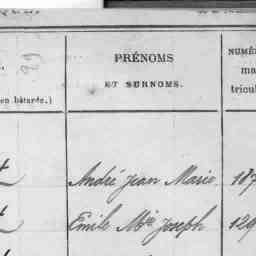 PRÉNOMS
ET SURNOMS.
NUMÉ
ma
tricul
en bâtarde.)
29
André Jean Marie 187
Emile Mie Joseph 129